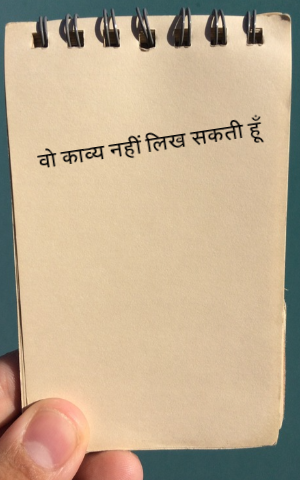 वो काव्य नहीं लिख सकती हूँ